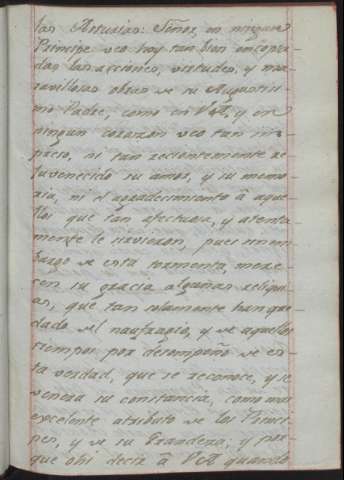 las Asturias: Señor, en ningun
Principe veo hoy tan bien emcopia-
das las acciones, virtudes, y ma-
ravillosas obras de su Augustisi-
mo Padre, como en VA, y en
ningun corazon veo tan im-
preso, ni tan recientemente re
juvenecido su amor, y su memo-
ria, ni el agradecimiento â aque-
llos que tan afectuosa, y atenta
mente le sirvieron, pues sin em-
bargo de esta tormenta, mere-
cen su gracia algunas reliqui-
as, que tan solamente han que-
dado del naufragio, y de aquellos
tiempos por desempeño de es-
ta verdad, que se reconoce, y se
venera su constancia, como mas
excelente atributo de los Princi-
pes, y de su Grandeza; y por-
que ohi decir â VA quando